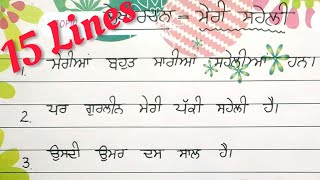 15 Lines
ਰਚਨਾ - ਮੇਰੀ ਸਹੇਲੀ
1. ਮੇਰੀਆਂ ਬਹੁਤ ਸਾਰੀਆਂ ਸਹੇਲੀਆਂ ਹਨ।
2. ਪਰ ਗੁਰਲੀਨ ਮੇਰੀ ਪੱਕੀ ਸਹੇਲੀ ਹੈ।
3. ਉਸਦੀ ਉਮਰ ਦਸ ਸਾਲ ਹੈ।